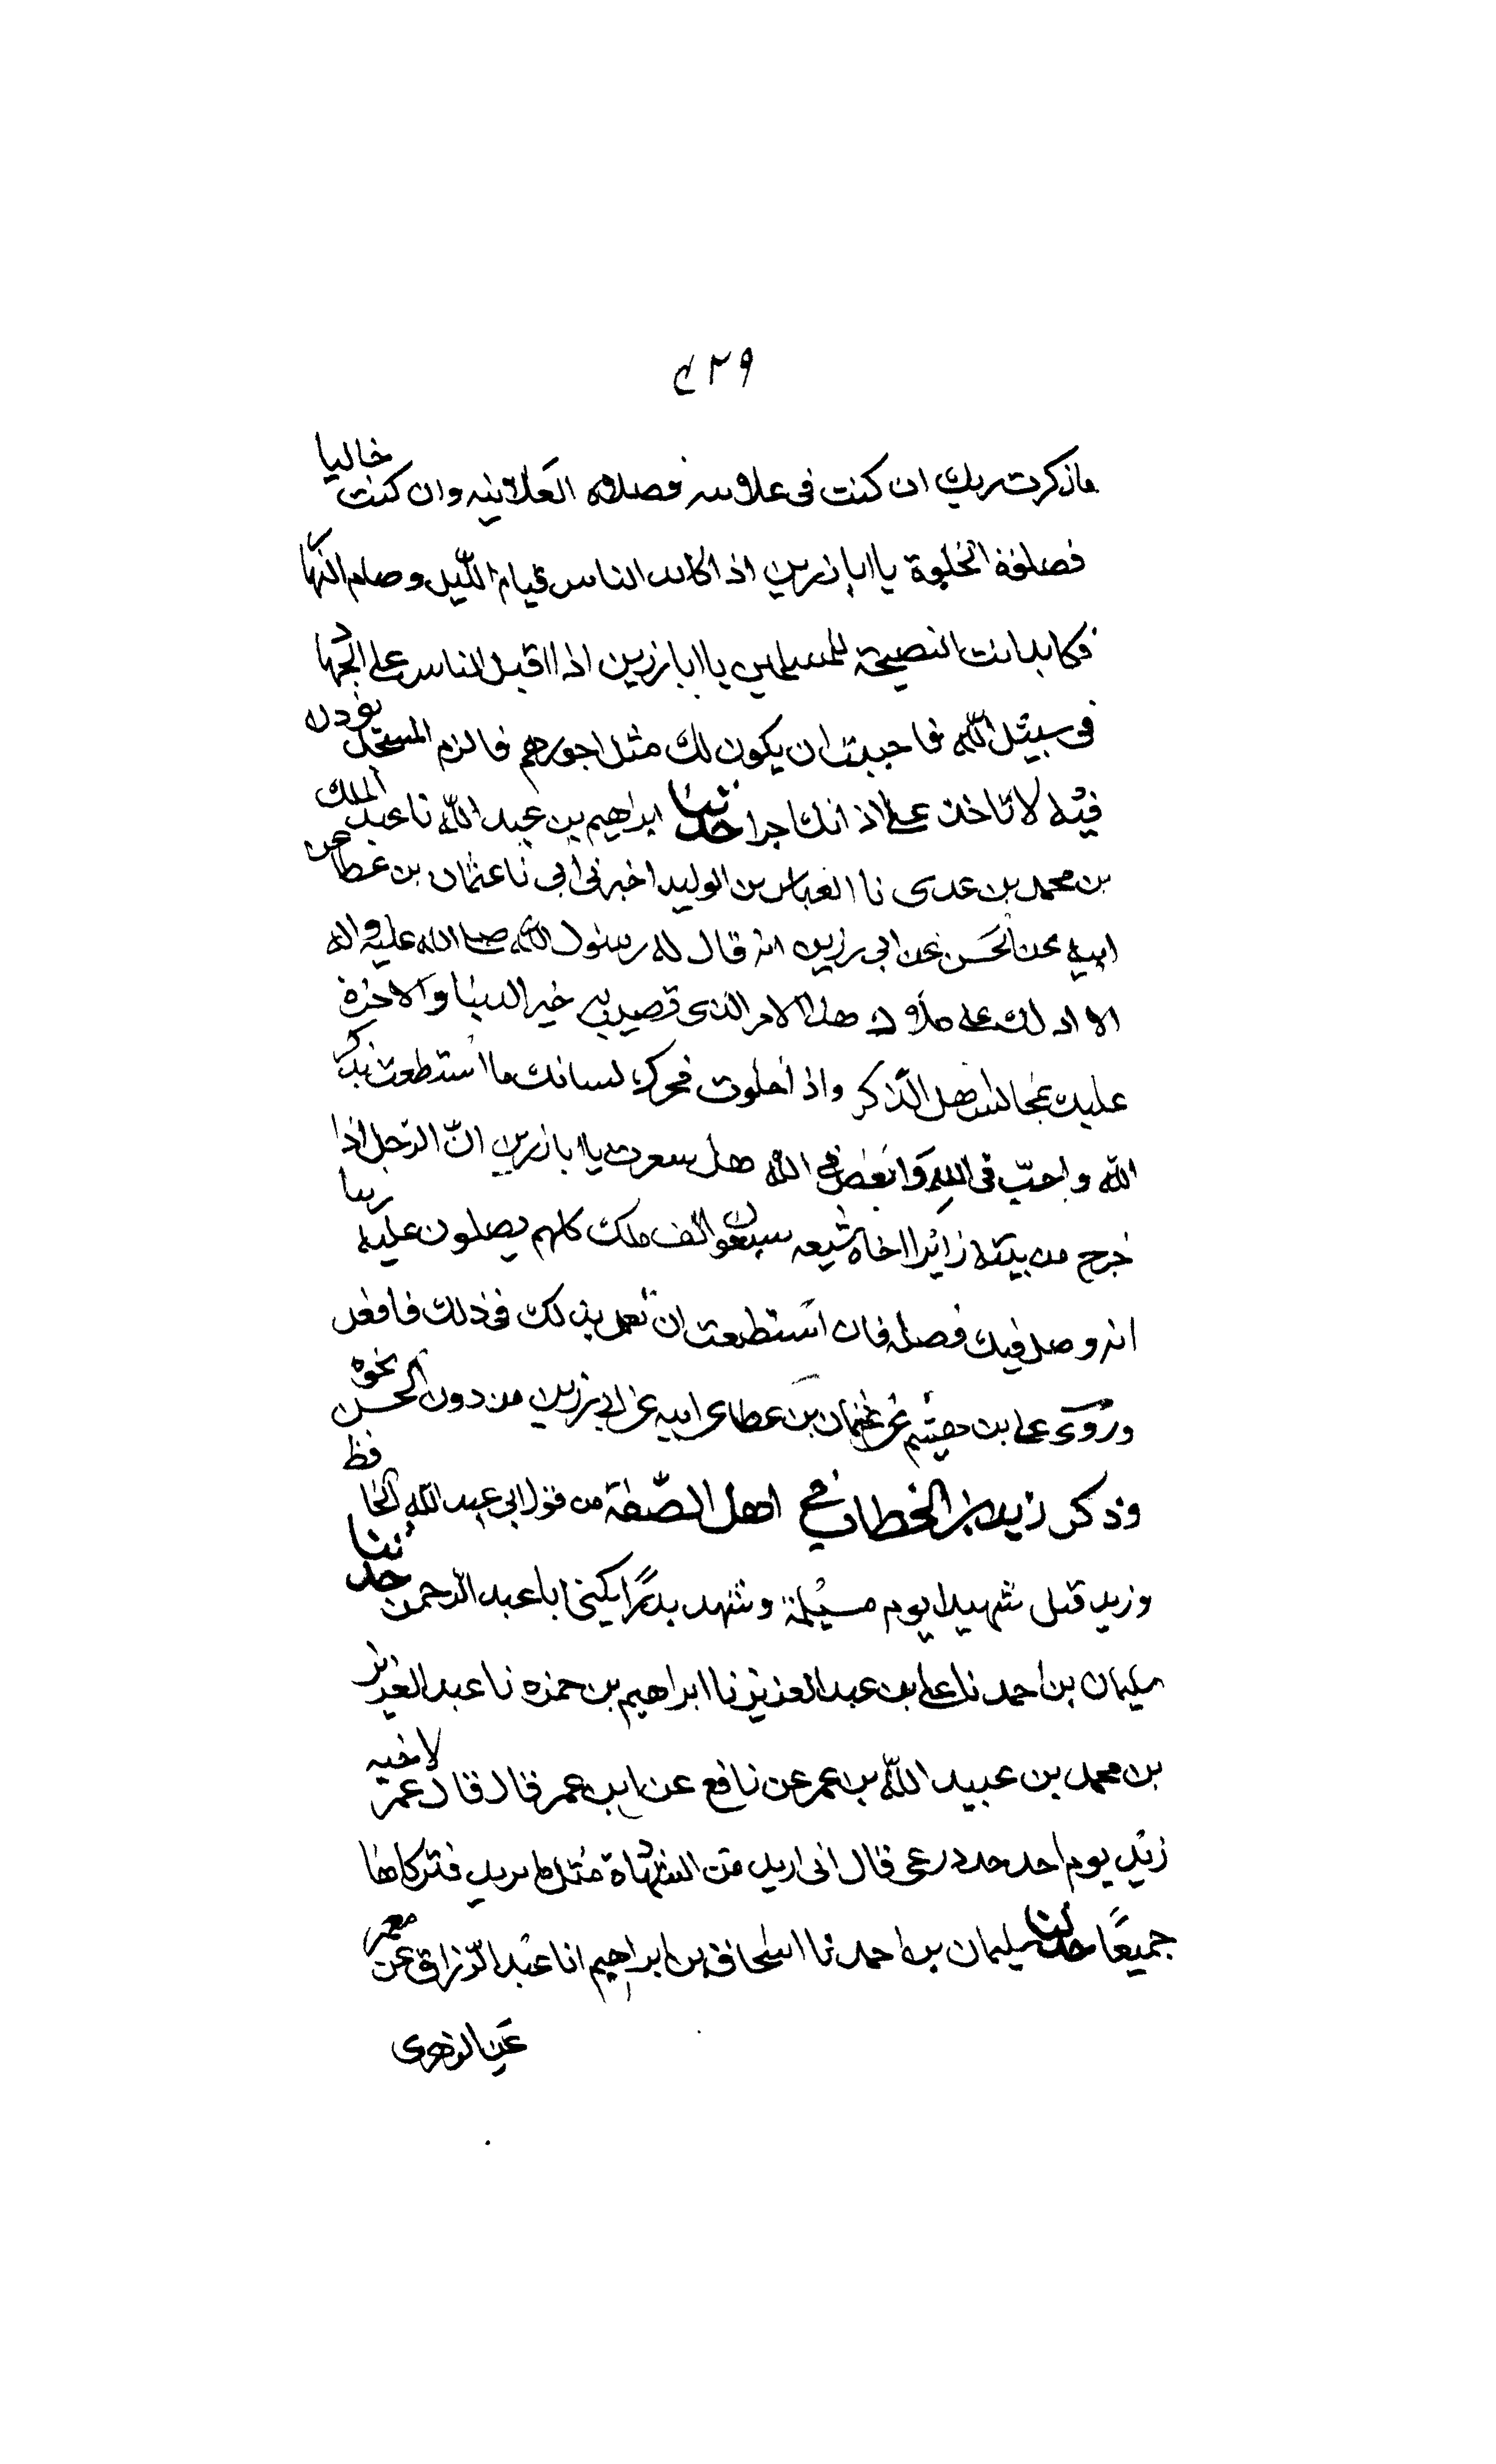 ٤٢٩
ماذكرت ربك ان كنت فى علانيه فصلاة العلانيه وان كنت خاليا
فصلوة الخلوة يا ابا زرين اذا كابد الناس قيام اللّيل وصام النّها
فكابد انت النصيحة للمسلمين يا ابا زرين اذا اقبل الناس على الجها د
فى سبيل الله فاحببت ان يكون لك مثل اجورهم فالزم المسجد تؤذن
فيه لا تاخذ على اذانك اجرا حدثنا ابراهيم بن عبد الله نا عبد الملك
بن محمد بن عدى نا العباس بن الوليد اخبرنى ابى نا عثمان بن عطا عن
ابيه عن الحسن عن ابى رزين انه قال له رسول الله صلى الله عليه واله
الا ادلك على ملاك هذا الامر الذى تصيب به خير الدنيا والاخرة
عليك بمجالس اهل الذكر واذا خلوت فحرك لسانك ما استطعت بذكر
الله واحبّ فى الله وابغض فى الله هل شعرت يا ابا زرين انّ الرجل اذا
خرج من بيته زائرا اخاه شيعه سبعون الف ملك كلهم يصلون عليه ربنا
انه وصل فيك فصله فان استطعت ان تعمل بذلك فى ذلك فافعل
وروى على بن هيثم عن عثمان بن عطا عن ابيه عن ابى رزين من دون الحسن نحوه
وذكر زيد بن الخطاب فى اهل الصّفة من قول ابى عبد الله الحا فظ
وزيد قتل شهيدا يوم مسيلمة وشهد بدرًا يكنى ابا عبد الرحمن حدثنا
سليمان بن احمد نا على بن عبد العزيز نا ابراهيم بن حمزه نا عبد العزيز
بن محمد بن عبيد الله بن عمر عن نافع عن ابن عمر قال قال عمر لاخيه
زيد يوم احد خذ درعى قال انى اريد من الشهادة مثل ما تريد فتركاها
جميعًا حدثنا سليمان بن احمد نا اسحاق بن ابراهيم انا عبد الرّزاق عن معمر
عن الزهرى